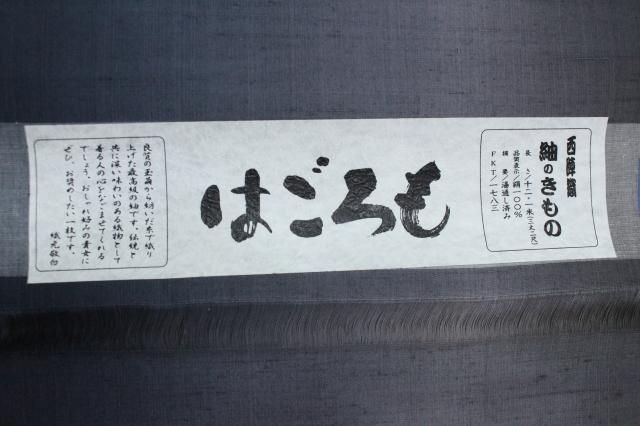 西陣織
紬のきもの
長さ/十二・一米(三丈二尺)
品質表示/絹一〇〇%
摘要/湯通し済み
FKT/一七八三
はごろも
良質の玉繭から紡いだ糸で織り
上げた最高級の紬です。伝統と
共に深い味わいのある織物として
着る人の心をなごませてくれる
でしょう。おしゃれ好みの貴女に
ぜひ、お奨めしたい一枚です。
織元敬白